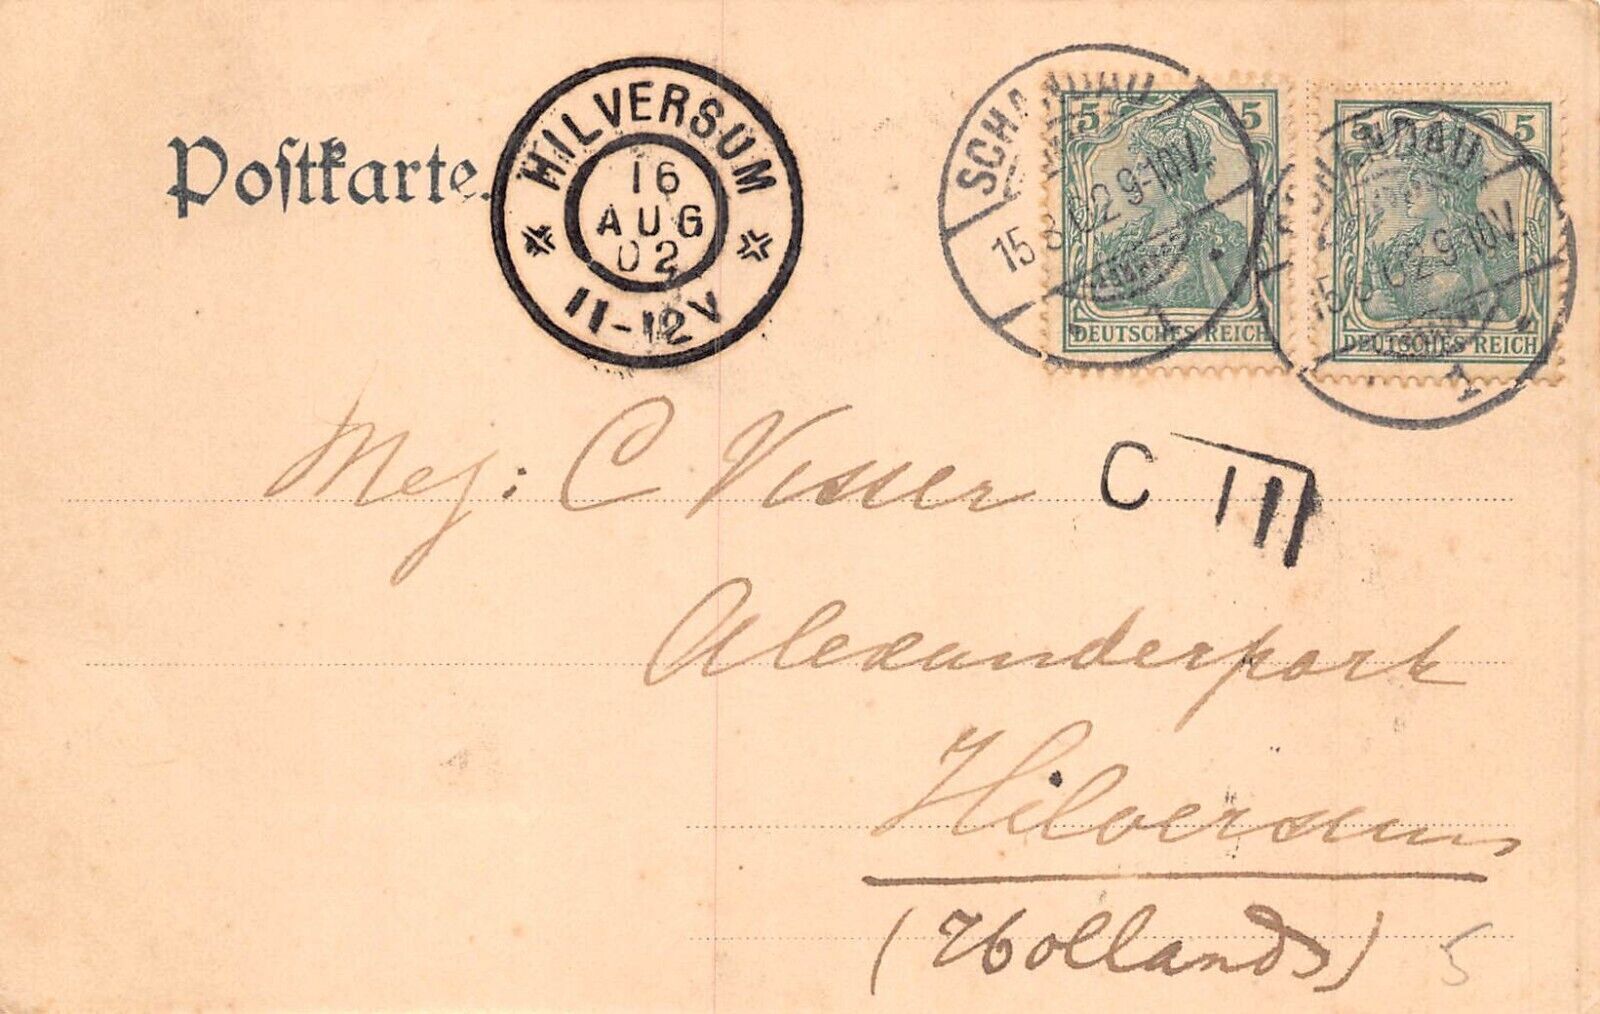 Postkarte.
HILVERSUM
16
AUG
02
11-12V
SCHANDAU
15 8 02 9-10V.
5 5
DEUTSCHES REICH
SCHANDAU
15 8 02 9-10V.
5 5
DEUTSCHES REICH
Mej: C Visser
C III
Alexanderpark
Hilversum
(Holland)
5